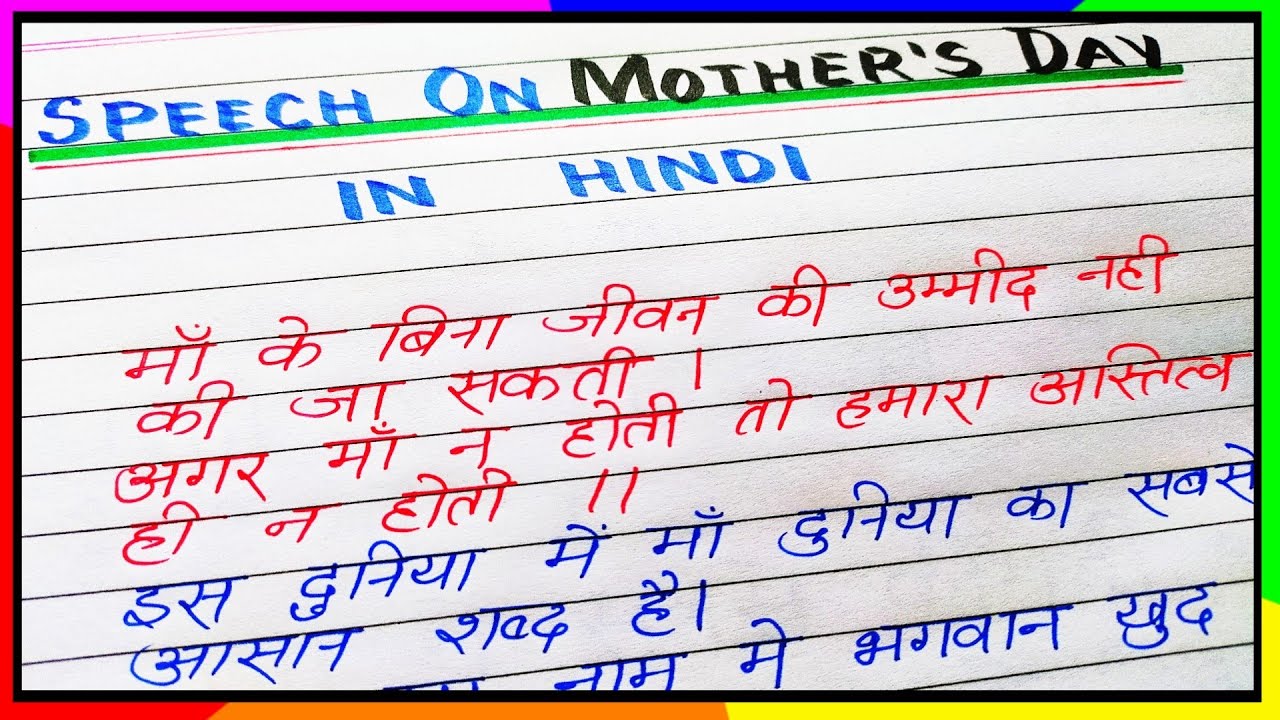 SPEECH ON MOTHER'S DAY
IN HINDI
माँ के बिना जीवन की उम्मीद नही
की जा सकती ।
अगर माँ न होती तो हमारा अस्तित्व
ही न होता ।।
इस दुनिया में माँ दुनिया का सबसे
आसान शब्द है।
नाम मे भगवान खुद